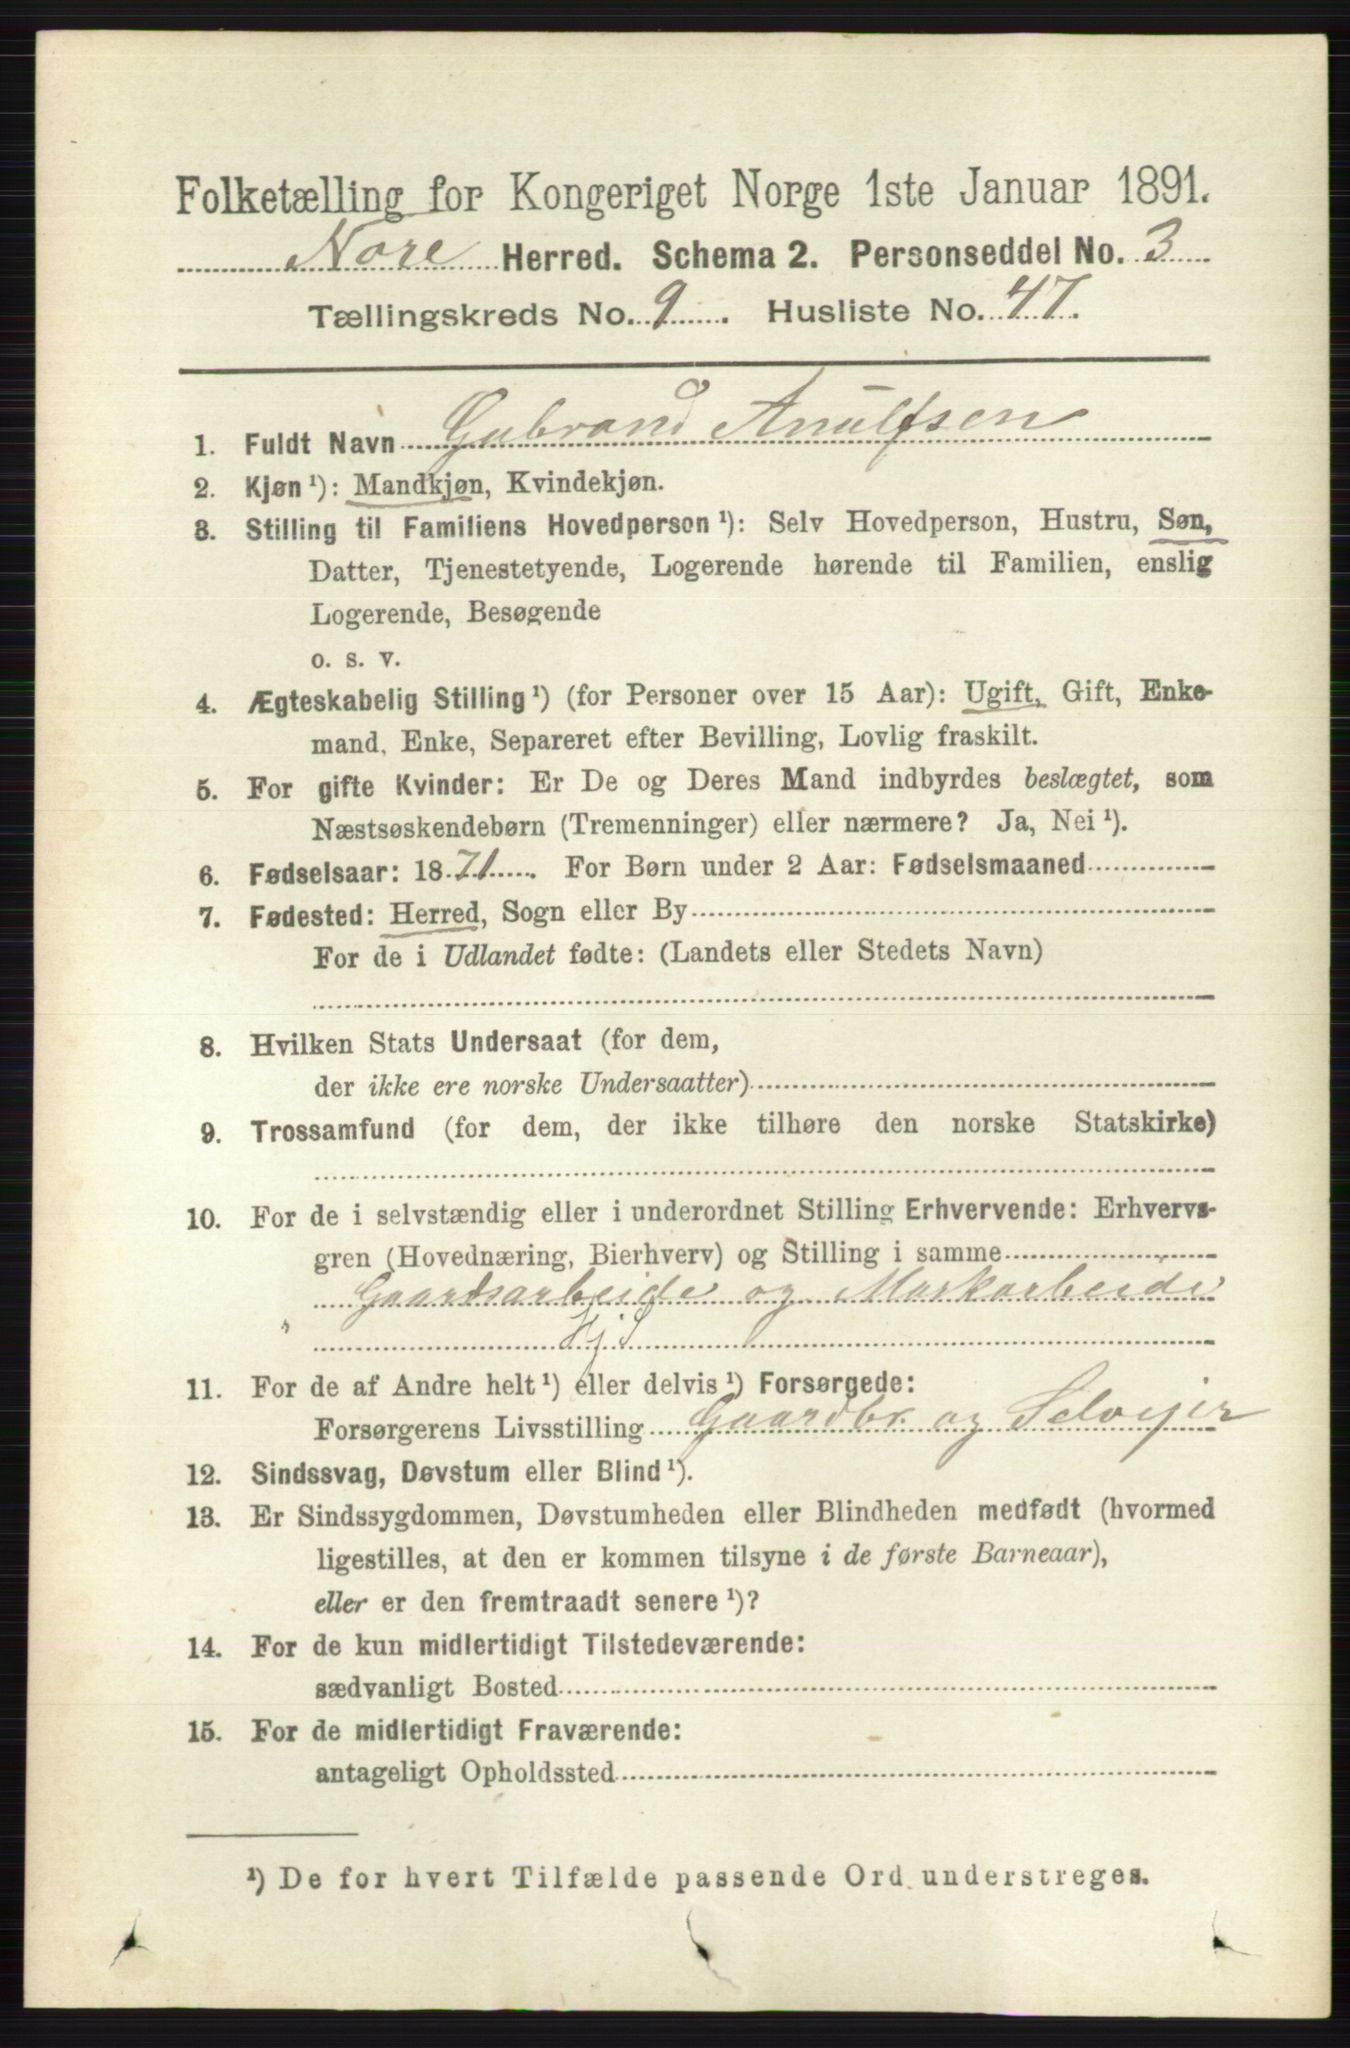 Folketælling for Kongeriget Norge 1ste Januar 1891.
Nore Herred. Schema 2. Personseddel No. 3
Tællingskreds No. 9. Husliste No. 47.
1. Fuldt Navn Gubrand Anulfsen
2. Kjøn¹): Mandkjøn, Kvindekjøn.
3. Stilling til Familiens Hovedperson¹): Selv Hovedperson, Hustru, Søn,
Datter, Tjenestetyende, Logerende hørende til Familien, enslig
Logerende, Besøgende
o. s. v.
4. Ægteskabelig Stilling¹) (for Personer over 15 Aar): Ugift, Gift, Enke-
mand, Enke, Separeret efter Bevilling, Lovlig fraskilt.
5. For gifte Kvinder: Er De og Deres Mand indbyrdes beslægtet, som
Næstsøskendebørn (Tremenninger) eller nærmere? Ja, Nei¹).
6. Fødselsaar: 1871. For Børn under 2 Aar: Fødselsmaaned
7. Fødested: Herred, Sogn eller By
For de i Udlandet fødte: (Landets eller Stedets Navn)
8. Hvilken Stats Undersaat (for dem,
der ikke ere norske Undersaatter)
9. Trossamfund (for dem, der ikke tilhøre den norske Statskirke)
10. For de i selvstændig eller i underordnet Stilling Erhvervende: Erhvervs-
gren (Hovednæring, Bierhverv) og Stilling i samme
Gaardsarbeide og Markarbeide
Hj S
11. For de af Andre helt¹) eller delvis¹) Forsørgede:
Forsørgerens Livsstilling Gaardbr. og Selvejer
12. Sindssvag, Døvstum eller Blind¹).
13. Er Sindssygdommen, Døvstumheden eller Blindheden medfødt (hvormed
ligestilles, at den er kommen tilsyne i de første Barneaar),
eller er den fremtraadt senere¹)?
14. For de kun midlertidigt Tilstedeværende:
sædvanligt Bosted
15. For de midlertidigt Fraværende:
antageligt Opholdssted
¹) De for hvert Tilfælde passende Ord understreges.